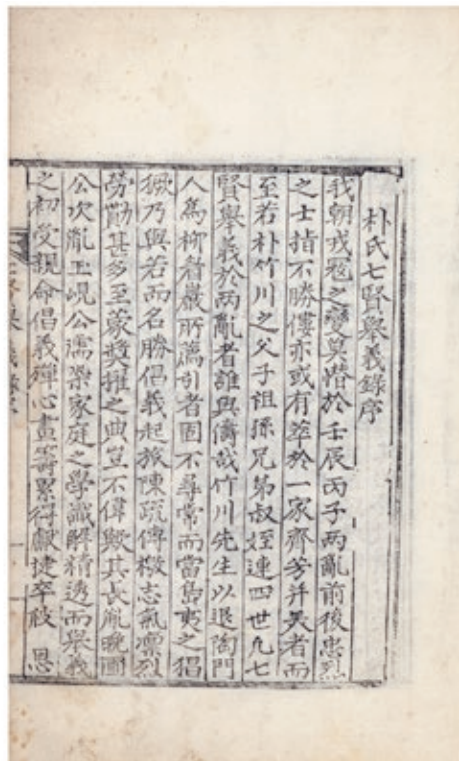 朴氏七賢擧義錄序
我朝戎寇之變莫憯於壬辰丙子兩亂前後忠烈
之士指不勝僂亦或有萃於一家齊芳并美者而
至若朴竹川之父子祖孫兄弟叔姪連四世凡七
賢擧義於兩亂者誰與儔哉竹川先生以退陶門
人爲柳眉巖所薦引者固不尋常而當島夷之猖
獗乃與若而名勝倡義起旅陳疏傳檄志氣凛烈
勞勩甚多至蒙奬擢之典豈不偉歟其長胤晩圃
公次胤玉峴公濡染家庭之学識解精透而擧義
之初受親命倡義殫心畫籌累得獻捷卒被 恩